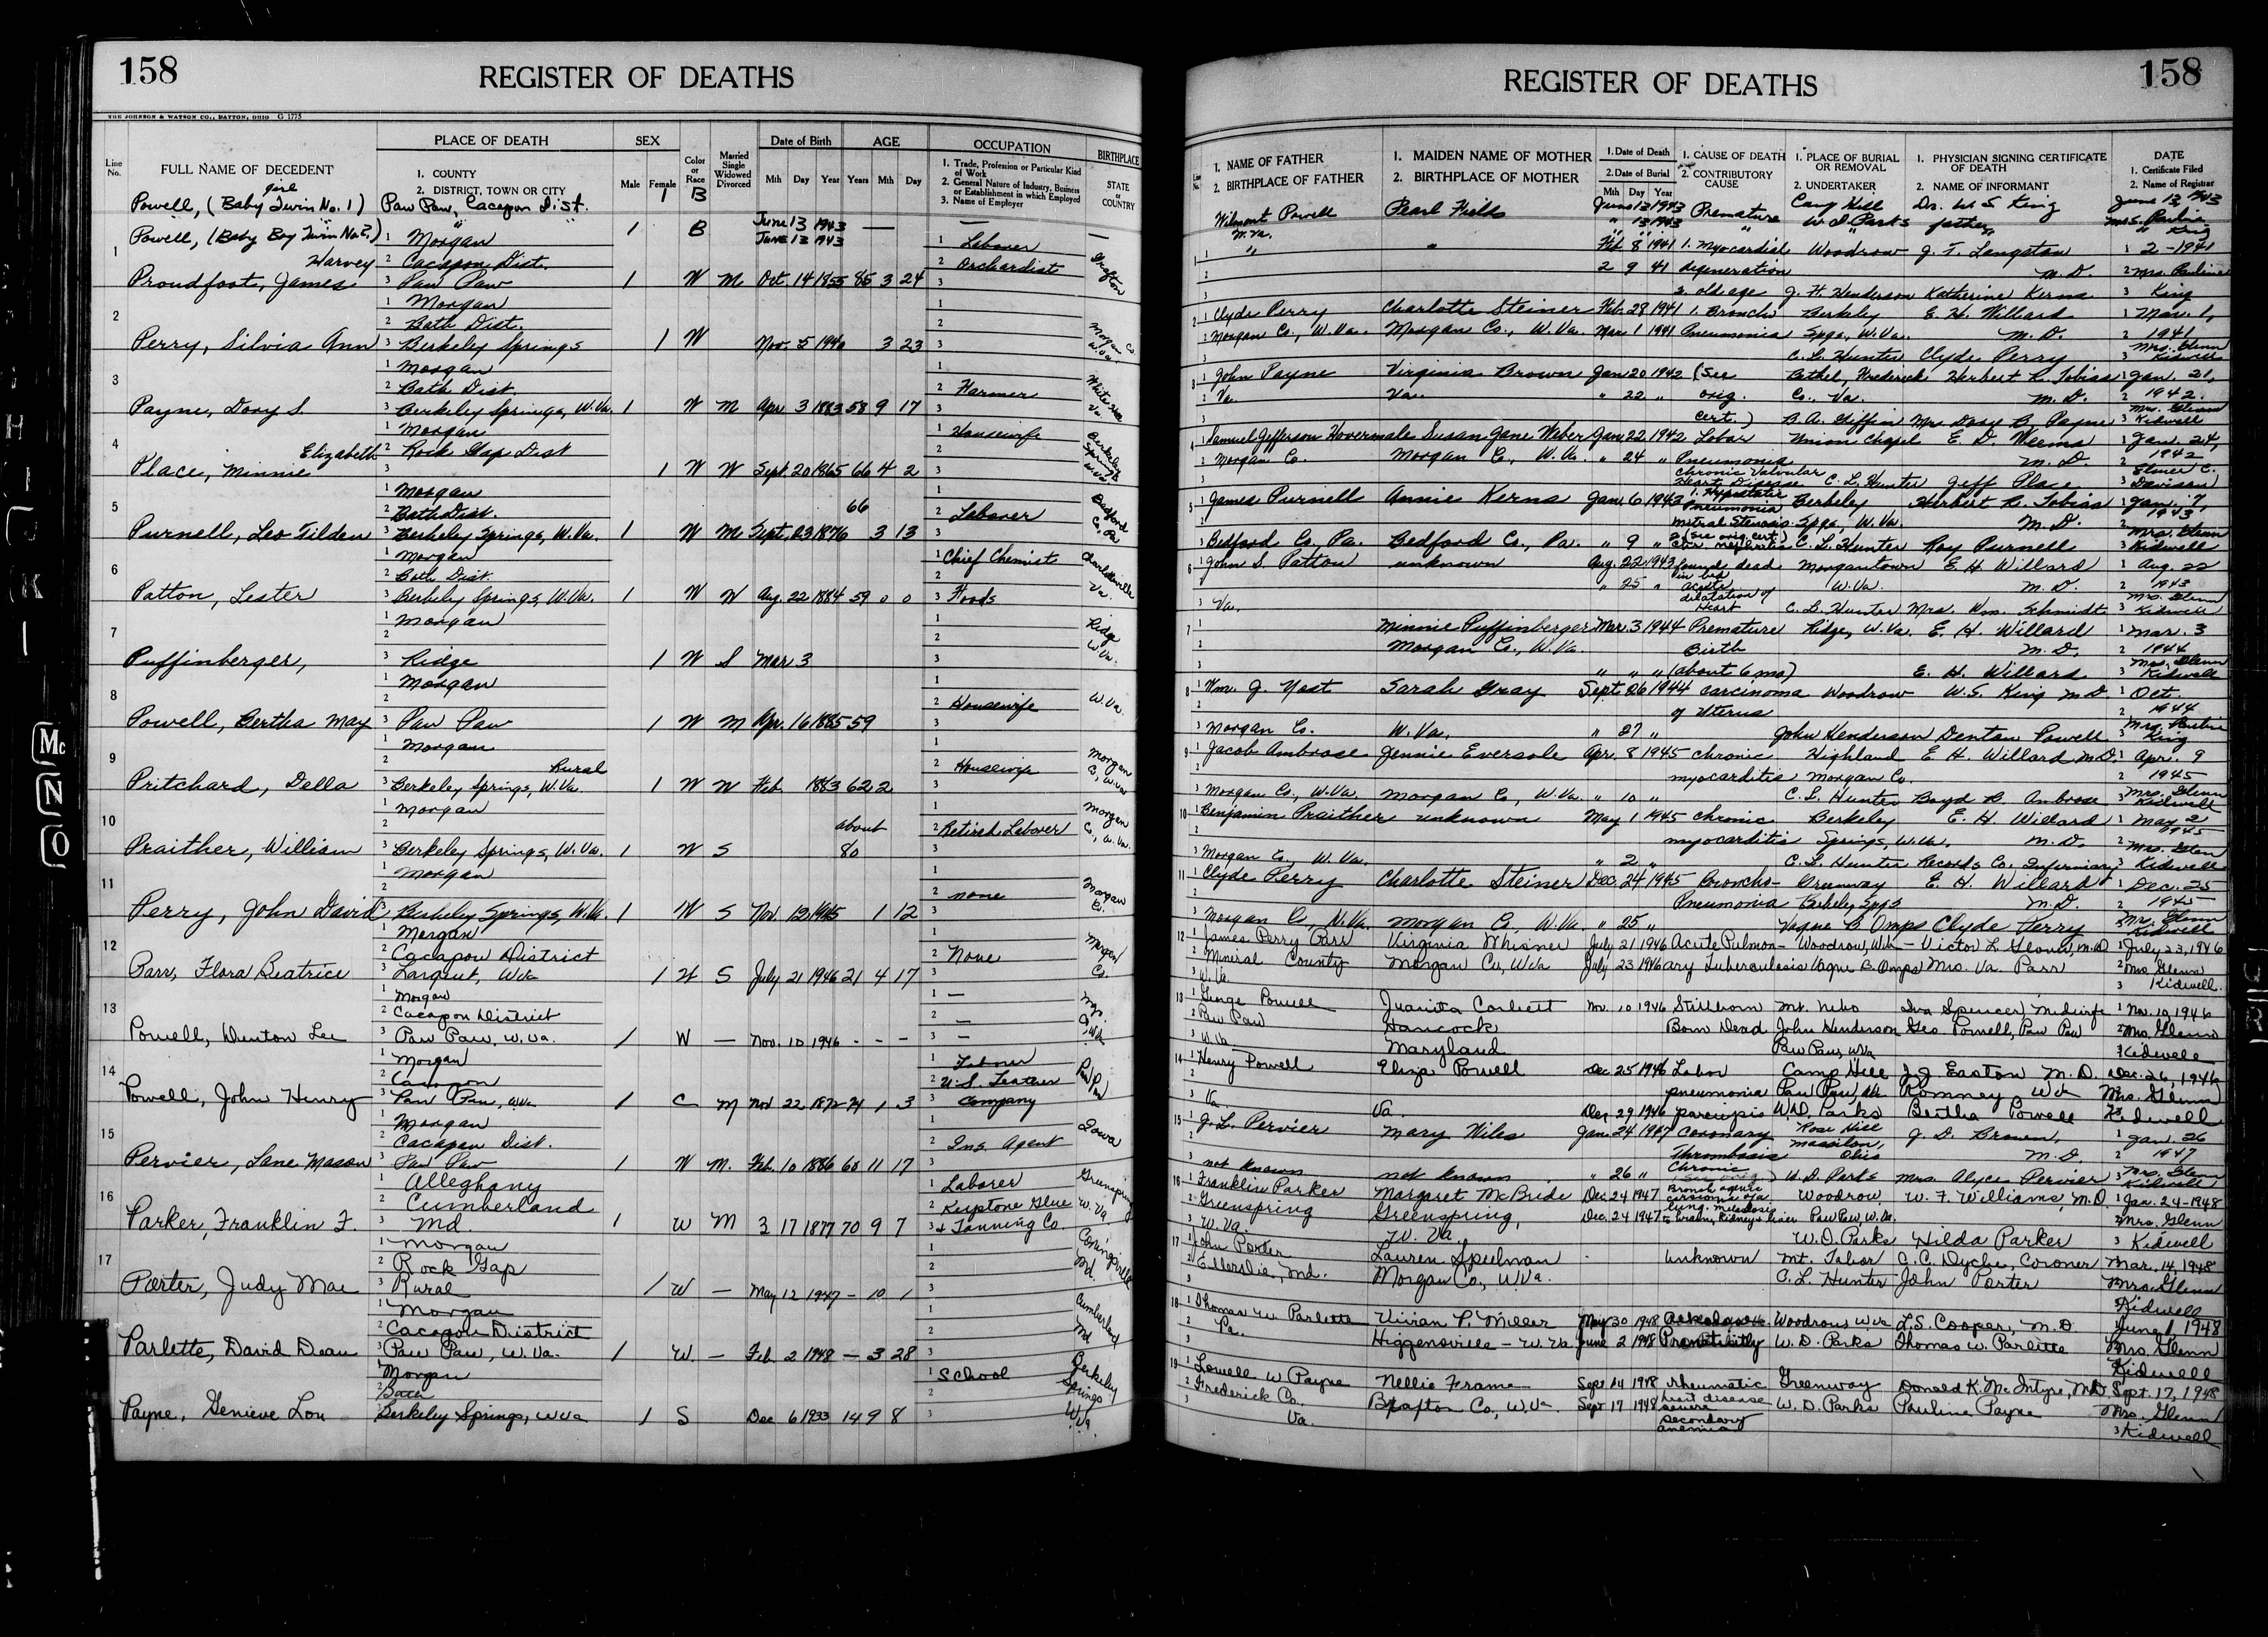 158
REGISTER OF DEATHS
THE JOHNSON & WATSON CO., DAYTON, OHIO G 1775
Line No.
FULL NAME OF DECEDENT
PLACE OF DEATH
1. COUNTY
2. DISTRICT, TOWN OR CITY
SEX
Male Female
Color or Race
Married Single Widowed Divorced
Date of Birth
Mth Day Year
AGE
Years Mth Day
OCCUPATION
1. Trade, Profession or Particular Kind of Work
2. General Nature of Industry, Business or Establishment in which Employed
3. Name of Employer
BIRTHPLACE
STATE OR COUNTRY
girl
Powell, (Baby Twin No. 1) Paw Paw, Cacapon Dist. 1 B June 13 1943 —
Powell, (Baby Boy Twin No. 2) " " 1 B June 13 1943 —
1 1 Morgan 1 Laborer
Harvey 2 Cacapon Dist. 2 Orchardist Grafton
Proudfoot, James 3 Paw Paw 1 W M Oct. 14 1855 85 3 24 3
2 1 Morgan 1
2 Bath Dist. 2 Morgan Co. W. Va.
Perry, Silvia Ann 3 Berkeley Springs 1 W Nov. 5 1940 3 23 3
3 1 Morgan 1
2 Bath Dist 2 Farmer
Payne, Dory S. 3 Berkeley Springs, W. Va. 1 W M Apr 3 1883 58 9 17 3
4 1 Morgan 1 Housewife
Elizabeth 2 Rock Gap Dist 2 Berkeley Springs W. Va.
Place, Minnie 3 1 W W Sept. 20 1865 66 4 2 3
5 1 Morgan 66 1
2 Bath Dist. 2 Laborer Bedford Co. Pa
Purnell, Leo Tilden 3 Berkeley Springs, W. Va. 1 W M Sept. 23 1876 3 13 3
6 1 Morgan 1 Chief Chemist
2 Bath Dist. 2 Charlottesville Va.
Patton, Lester 3 Berkeley Springs, W. Va. 1 W W Aug. 22 1884 59 0 0 3 Foods
7 1 Morgan 1
2 2 Ridge W. Va.
Puffinberger, 3 Ridge 1 W S Mar 3 3
8 1 Morgan 1
2 2 Housewife W. Va.
Powell, Bertha May 3 Paw Paw 1 W M Apr. 16 1885 59 3
9 1 Morgan 1
2 Rural 2 Housewife Morgan Co, W. Va
Pritchard, Della 3 Berkeley Springs, W. Va. 1 W W Feb. 1883 62 2 3
10 1 Morgan 1
2 about 2 Retired Laborer Morgan Co., W. Va.
Praither, William 3 Berkeley Springs, W. Va. 1 W S 80 3
11 1 Morgan 1
2 2 none Morgan Co.
Perry, John David 3 Berkeley Springs, W. Va. 1 W S Nov. 12 1945 1 12 3
12 1 Morgan 1
2 Cacapon District 2 None Morgan Co.
Parr, Flora Beatrice 3 Largent, WVa 1 W S July 21 1946 21 4 17 3
13 1 Morgan 1 —
2 Cacapon District 2 —
Powell, Dunton Lee 3 Paw Paw, W. Va. 1 W — Nov. 10 1946 - - - 3 —
14 1 Morgan 1 Laborer
2 Cacapon 2 U. S. Leather Paw Paw
Powell, John Henry 3 Paw Paw, W.Va 1 C M Nov 22 1872 74 1 3 3 Company
15 1 Morgan 1
2 Cacapon Dist. 2 Ins. Agent Iowa
Pervier, Lane Mason 3 Paw Paw 1 W M. Feb. 10 1886 60 11 17 3
16 1 Alleghany 1 Laborer
2 Cumberland 2 Keystone Glue Greenspring W. Va.
Parker, Franklin F. 3 Md. 1 W M 3 17 1877 70 9 7 3 & Tanning Co.
17 1 Morgan 1
2 Rock Gap 2 Md.
Porter, Judy Mae 3 Rural 1 W — May 12 1947 - 10 1 3
1 Morgan 1
2 Cacapon District 2 Cumberland Md
Parlette, David Dean 3 Paw Paw, W. Va. 1 W. — Feb. 2 1948 — 3 28 3
1 Morgan 1 School
2 Bath 2 Berkeley Springs W.Va
Payne, Genieve Lou 3 Berkeley Springs, W Va 1 S Dec 6 1933 14 9 8 3
158
REGISTER OF DEATHS
Line No.
1. NAME OF FATHER
2. BIRTHPLACE OF FATHER
1. MAIDEN NAME OF MOTHER
2. BIRTHPLACE OF MOTHER
1. Date of Death
2. Date of Burial
Mth Day Year
1. CAUSE OF DEATH
2. CONTRIBUTORY CAUSE
1. PLACE OF BURIAL OR REMOVAL
2. UNDERTAKER
1. PHYSICIAN SIGNING CERTIFICATE OF DEATH
2. NAME OF INFORMANT
DATE
1. Certificate Filed
2. Name of Registrar
Wilmont Powell Pearl Fields June 13 1943 Premature Camp Hill Dr. W S King June 13, 1943
W. Va. " 13 1943 " W D Parks father Mrs. Pauline King
1 1 " " Feb 8 1941 1. Myocardial Woodrow J. T. Langston 1 2 - 1941
2 2 9 41 degeneration M. D. 2 Mrs Pauline
3 2. old age J. H. Henderson Katherine Kerns 3 King
2 1 Clyde Perry Charlotte Steiner Feb. 28 1941 1. Broncho Berkeley E. H. Willard 1 Mar. 1,
2 Morgan Co., W. Va. Morgan Co., W. Va. Mar. 1 1941 Pneumonia Spgs., W. Va. M. D. 2 1941
3 C. L. Hunter Clyde Perry 3 Mrs. Glenn Kidwell
3 1 John Payne Virginia Brown Jan 20 1942 (See Bethel, Frederick Herbert R. Tobias 1 Jan. 21,
2 Va. Va. " 22 " orig. Co., Va. M. D. 2 1942.
3 cert.) B. A. Giffin Mrs Dory B. Payne 3 Mrs. Glenn Kidwell
4 1 Samuel Jefferson Hovermale Susan Jane Weber Jan 22 1942 Lobar Union Chapel E. D. Weems 1 Jan. 24,
2 Morgan Co. Morgan Co., W. Va. " 24 " Pneumonia M. D. 2 1942
3 Chronic Valvular Heart Disease C. L. Hunter Jeff Place 3 Elmer C. Davison
5 1 James Purnell Annie Kerns Jan. 6 1943 1. Hypostatic Pneumonia Berkeley Herbert R. Tobias 1 Jan. 7,
2 Mitral Stenosis Spgs., W. Va. M. D. 2 1943
3 Bedford Co. Pa. Bedford Co., Pa. " 9 " 2 (See orig. cert.) Chr. nephritis C. L. Hunter Roy Purnell 3 Mrs. Glenn Kidwell
6 1 John S. Patton unknown Aug. 22 1943 found dead in bed Morgantown E. H Willard 1 Aug. 22
2 " 25 " acute dilatation of W. Va. M. D. 2 1943
3 Va. Heart C. L. Hunter Mrs. Wm. Schmidt 3 Mrs. Glenn Kidwell
7 1 Minnie Puffinberger Mar. 3 1944 Premature Ridge, W. Va. E. H. Willard 1 Mar. 3
2 Morgan Co., W. Va. Birth M. D. 2 1944
3 " " " (about 6 mo) E. H. Willard 3 Mrs. Glenn Kidwell
8 1 Wm. J. Yost Sarah Gray Sept. 26 1944 Carcinoma Woodrow W. S. King M. D. 1 Oct.
2 of Uterus 2 1944
3 Morgan Co. W. Va. " 27 " John Henderson Denton Powell 3 Mrs. Pauline King
9 1 Jacob Ambrose Jennie Eversole Apr. 8 1945 Chronic Highland E. H. Willard, M.D. 1 Apr. 9
2 myocarditis Morgan Co. 2 1945
3 Morgan Co., W. Va. Morgan Co, W. Va. " 10 " C. L. Hunter Boyd B. Ambrose 3 Mrs. Glenn Kidwell
10 1 Benjamin Praither unknown May 1 1945 Chronic Berkeley E. H. Willard 1 May 2
2 myocarditis Springs, W. Va. M. D. 2 1945
3 Morgan Co., W. Va. " 2 " C. L. Hunter Records Co. Infirmary 3 Mrs. Glen Kidwell
11 1 Clyde Perry Charlotte Steiner Dec. 24 1945 Broncho- Greenway E. H. Willard 1 Dec. 25
2 Pneumonia Berkeley Spgs M. D. 2 1945
3 Morgan Co, W. Va. Morgan Co, W. Va. " 25 " Vogue B Omps Clyde Perry 3 Mrs. Glenn Kidwell
12 1 James Perry Parr Virginia Whisner July 21 1946 Acute Pulmon- Woodrow, W.Va - Victor L Glover, M.D 1 July 23, 1946
2 Mineral County Morgan Co, W Va July 23 1946 ary Tuberculosis Vogue B. Omps Mrs. Va. Parr 2 Mrs. Glenn
3 W. Va. 3 Kidwell.
13 1 George Powell Juanita Corbett Nov. 10 1946 Stillborn Mt. Nebo Iva Spencer, Midwife 1 Nov. 10, 1946
2 Paw Paw Hancock Born Dead John Henderson Geo Powell, Paw Paw 2 Mrs. Glenn
3 W. Va. Maryland Paw Paw, W.Va 3 Kidwell
14 1 Henry Powell Eliza Powell Dec 25 1946 Lobar Camp Hill J. J. Easton M. D. 1 Dec. 26, 1946
2 pneumonia Paw Paw, W.Va Romney W Va 2 Mrs. Glenn
3 Va Va. Dec 29 1946 W.D. Parks Bertha Powell 3 Kidwell
15 1 J. L. Pervier Mary Niles Jan. 24 1947 Coronary Rose Hill J. D. Brown, 1 Jan. 26
2 Thrombosis Massilon, Ohio M. D. 2 1947
3 not known not known " 26 " Chronic W. D. Parks Mrs. Alyce Pervier 3 Mrs. Glenn Kidwell
16 1 Franklin Parker Margaret McBride Dec. 24 1947 carcinoma of Woodrow W. F. Williams, M. D. 1 Jan. 24-1948
2 Greenspring Greenspring, Dec. 24 1947 lung metastasis to brain, kidney & liver Paw Paw, W. Va. 2 Mrs. Glenn
3 W. Va. W. Va. W. D. Parks Hilda Parker 3 Kidwell
17 1 John Porter Lauren Spielman - Unknown Mt. Tabor A. C. Dyche, Coroner Mar. 14, 1948
2 Ellerslie, Md. Morgan Co, W Va. C. L. Hunter John Porter 2 Mrs. Glenn
3 3 Kidwell
18 1 Thomas W Parlette Vivian P. Miller May 30 1948 Woodrow, W Va L. S. Cooper, M. D. 1 June 1, 1948
2 Pa. Higginsville - W. Va June 2 1948 Prematurity W. D. Parks Thomas W. Parlette 2 Mrs. Glenn
3 3 Kidwell
19 1 Lowell W Payne Nellie Frame Sept 14 1948 Rheumatic Greenway Donald K. McIntyre, MD 1 Sept. 17, 1948
2 Frederick Co. Braxton Co, W. Va Sept 17 1948 heart disease severe W. D. Parks Pauline Payne 2 Mrs. Glenn
3 Va. secondary anemia 3 Kidwell